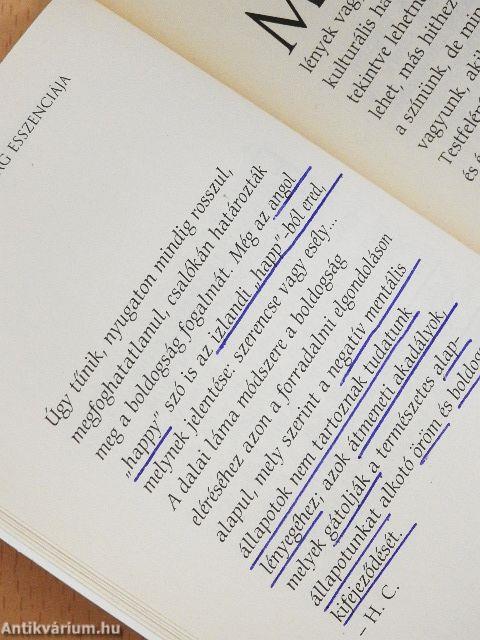 ÁG ESSZENCIÁJA
Úgy tűnik, nyugaton mindig rosszul,
megfoghatatlanul, csalókán határozták
meg a boldogság fogalmát. Még az angol
„happy” szó is az izlandi „happ”-ból ered,
melynek jelentése: szerencse vagy esély...
A dalai láma módszere a boldogság
eléréséhez azon a forradalmi elgondoláson
alapul, mely szerint a negatív mentális
állapotok nem tartoznak tudatunk
lényegéhez; azok átmeneti akadályok,
melyek gátolják a természetes alap-
állapotunkat alkotó öröm és boldog
kifejeződését.
– H. C.
M
lények vagy
kulturális há
tekintve lehetn
lehet, más hithez
a színünk, de min
vagyunk, aki
Testfelép
és é
Antikvárium.hu